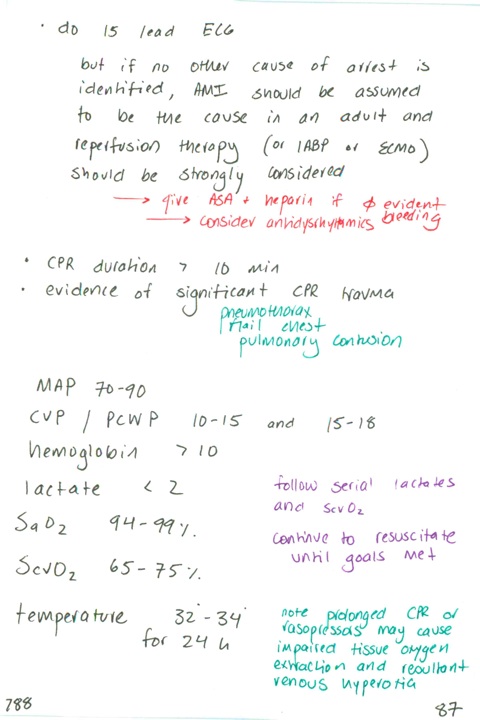 · do 15 lead ECG
but if no other cause of arrest is
identified, AMI should be assumed
to be the cause in an adult and
reperfusion therapy (or IABP or ECMO)
should be strongly considered
→ give ASA + heparin if ϕ evident
bleeding
→ consider antidysrhythmics
· CPR duration > 10 min
· evidence of significant CPR trauma
pneumothorax
flail chest
pulmonary contusion
MAP 70-90
CVP / PCWP 10-15 and 15-18
hemoglobin > 10
lactate < 2
follow serial lactates
and ScvO2
SaO2 94-99%
continue to resuscitate
until goals met
ScvO2 65-75%
temperature 32°-34°
for 24 h
note prolonged CPR or
vasopressors may cause
impaired tissue oxygen
extraction and resultant
venous hyperoxia
788
87